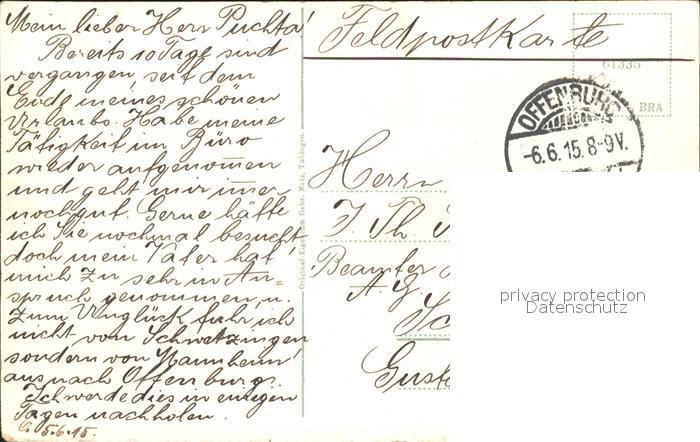 Mein lieber Herr Puchta!
Bereits 10 Tage sind
vergangen, seit dem
Ende meines schönen
Urlaubs. Habe meine
Tätigkeit im Büro
wieder aufgenom̅en
und geht mir im̅er
noch gut. Gerne hätte
ich Sie nochmal besucht
doch mein Vater hat
mich zu sehr in An=
spruch genommen, u.
zum Unglück fuhr ich
nicht von Schwetzingen
sondern von Mannheim
aus nach Offenburg.
Ich werde dies in einigen
Tagen nachholen.
5.6.15.
Original-Eigentum Gebr. Metz, Tübingen.
Feldpostkarte
61335
BRA
OFFENBURG
-6.6.15.8-9V.
Herrn
J. Th.
Beamter
A. G.
privacy protection
Datenschutz